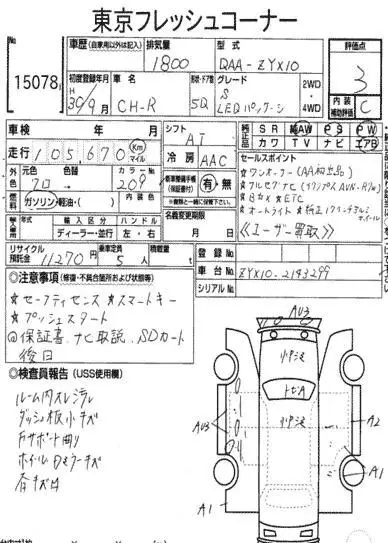 東京フレッシュコーナー
No 15078
車歴 (自家用以外は記入) 排気量 1800 型式 QAA-ZYX10 評価点 3
初度登録年月 H 30/9月 車名 CH-R 形状・ドア数 5D グレード S LEDパッケージ 2WD・4WD 内装補助評価 C
車検 年 月 シフト AT 純正 SR 純AW PS PW
走行 105,670 Km マイル 冷房 AAC カワ TV ナビ エアB
外色 元色 クロ 色替 → 209 有・無
セールスポイント
★ワンオーナー(AA初出品)
燃料 ガソリン・軽油・( )
★Bカメ★ETC
★オートライト★純正17インチアルミホイール
輸入車 年 輸入 区分 ハンドル
ディーラー・並行 左・右
名義変更期限 月 日
《ユーザー買取》
リサイクル預託金 11270円 乗車定員 5人 積載量 t
登録No
車台No ZYX10-2143299
シリアルNo
◎注意事項 (修復・不具合箇所および状態等)
★セーフティセンス ★スマートキー
★プッシュスタート
◎保証書、ナビ取説、SDカード
後日
◎検査員報告 (USS使用欄)
ルーム内スレ汚
ダッシュ板小キズ
ホイルDセンターキズ
各キズ凹
AU3
トビA
AU3
A2
A1
A1